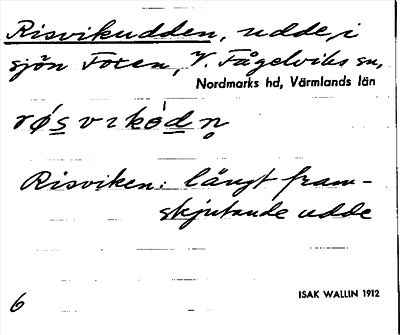 Risvikudden, udde, i
sjön Foxen, V. Fågelviks sn,
Nordmarks hd, Värmlands län
røsvikòdn̥
Risviken: långt fram-
skjutande udde
6
ISAK WALLIN 1912